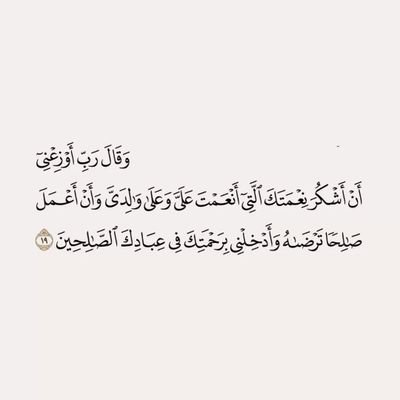 وَقَالَ رَبِّ أَوۡزِعۡنِيٓ
أَنۡ أَشۡكُرَ نِعۡمَتَكَ ٱلَّتِيٓ أَنۡعَمۡتَ عَلَيَّ وَعَلَىٰ وَٰلِدَيَّ وَأَنۡ أَعۡمَلَ
صَٰلِحٗا تَرۡضَىٰهُ وَأَدۡخِلۡنِي بِرَحۡمَتِكَ فِي عِبَادِكَ ٱلصَّٰلِحِينَ ١٩